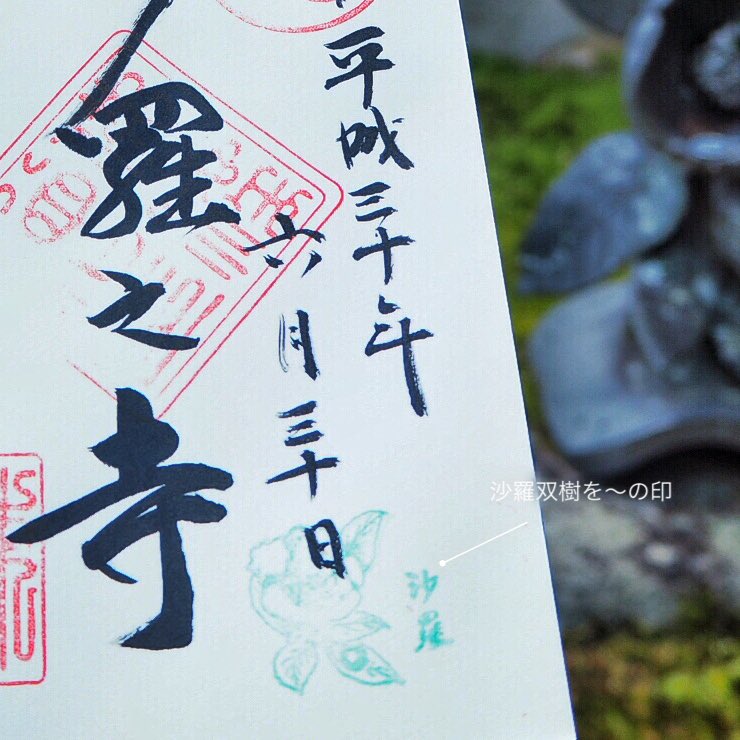 平成三十年
六月三十日
羅之寺
沙羅
沙羅双樹を〜の印